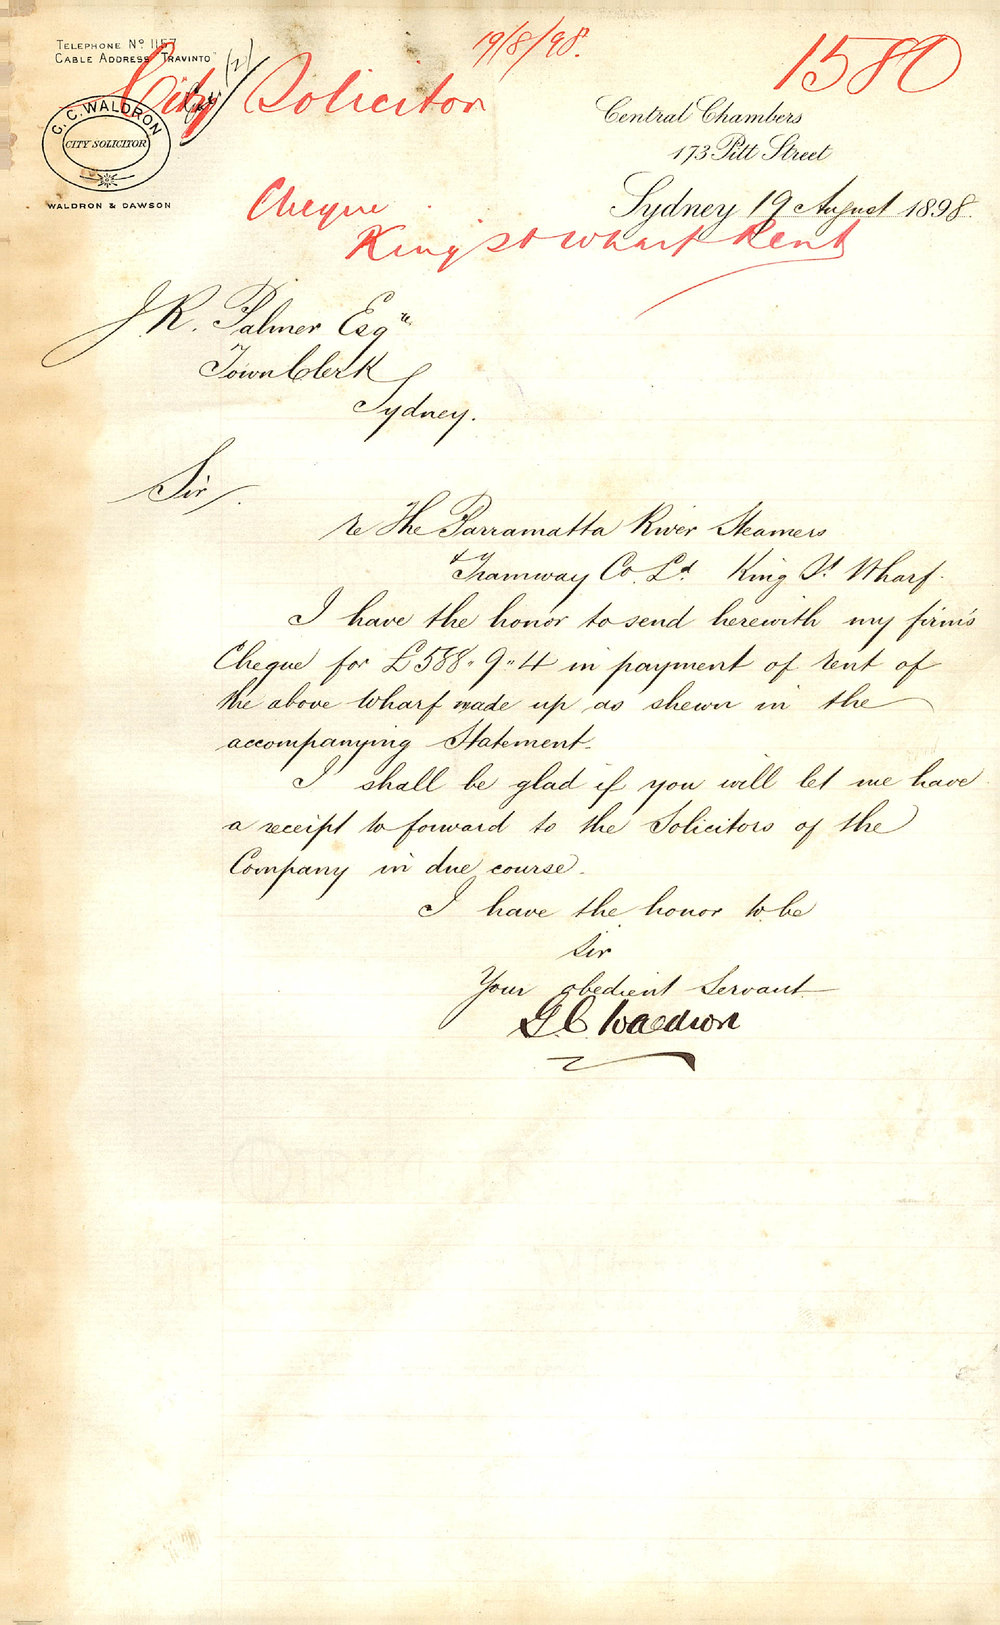 TELEPHONE Nº 1157
CABLE ADDRESS "TRAVINTO"
19/8/98.
1580
City Solicitor
(2)
G. C. WALDRON
CITY SOLICITOR
WALDRON & DAWSON
Central Chambers
173 Pitt Street
Sydney 19 August 1898.
Cheque
King St Wharf Rent
J. R. Palmer Esqre
Town Clerk
Sydney.
Sir,
re The Parramatta River Steamers
& Tramway Co. Ld. King St. Wharf.
I have the honor to send herewith my firm's
Cheque for £588 " 9 " 4 in payment of rent of
the above Wharf made up as shewn in the
accompanying Statement.
I shall be glad if you will let me have
a receipt to forward to the Solicitors of the
Company in due course.
I have the honor to be
Sir
Your obedient Servant
G. C. Waldron